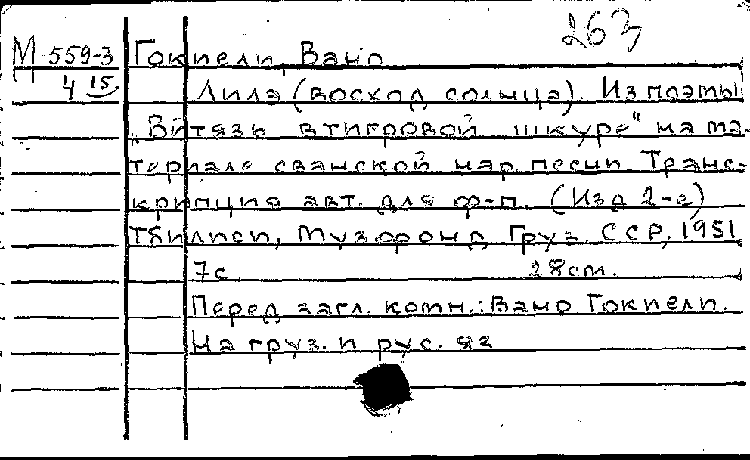 263
М 559-3 Гокиели, Вано
4 15 Лилэ (восход солнца). Из поэмы
„Витязь в тигровой шкуре“ на ма-
териале сванской нар песни. Транс-
крипция авт. для ф-п. (Изд 2-е)
Тбилиси, Музфонд Груз ССР, 1951
7с 28cm.
Перед загл. комп.: Вано Гокиели.
На груз. и рус. яз